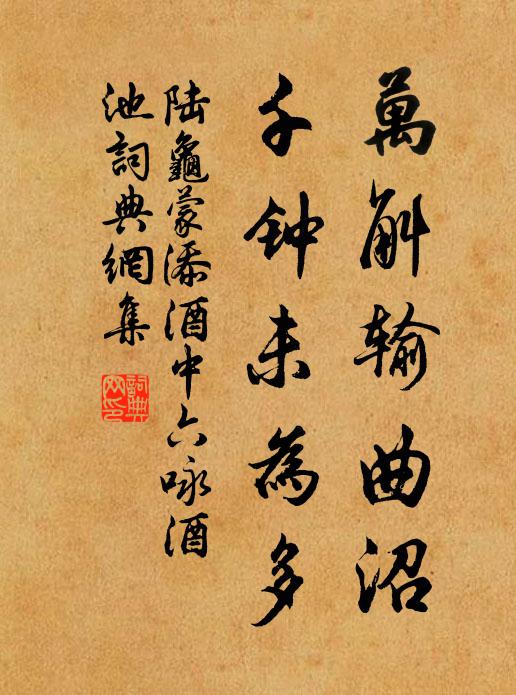 萬斛输曲沼
千钟未為多
陆龜蒙添酒中六咏酒
池詞典網集
詞典网印